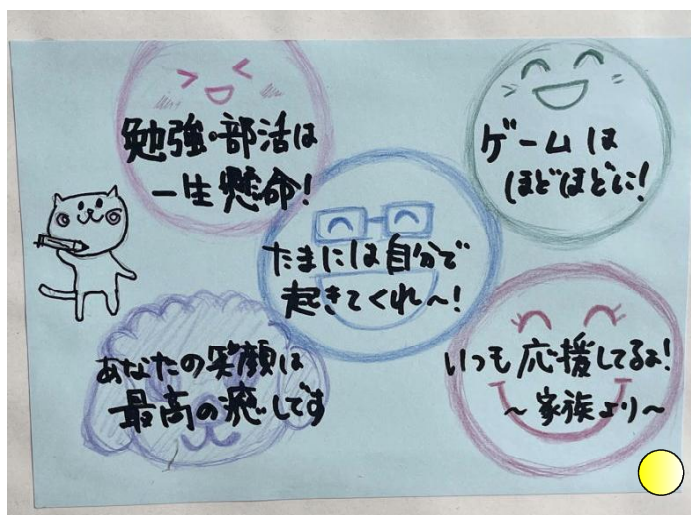 勉強・部活は
一生懸命!
ゲームは
ほどほどに!
たまには自分で
起きてくれ〜!
あなたの笑顔は
最高の癒しです
いつも応援してるよ!
〜家族より〜